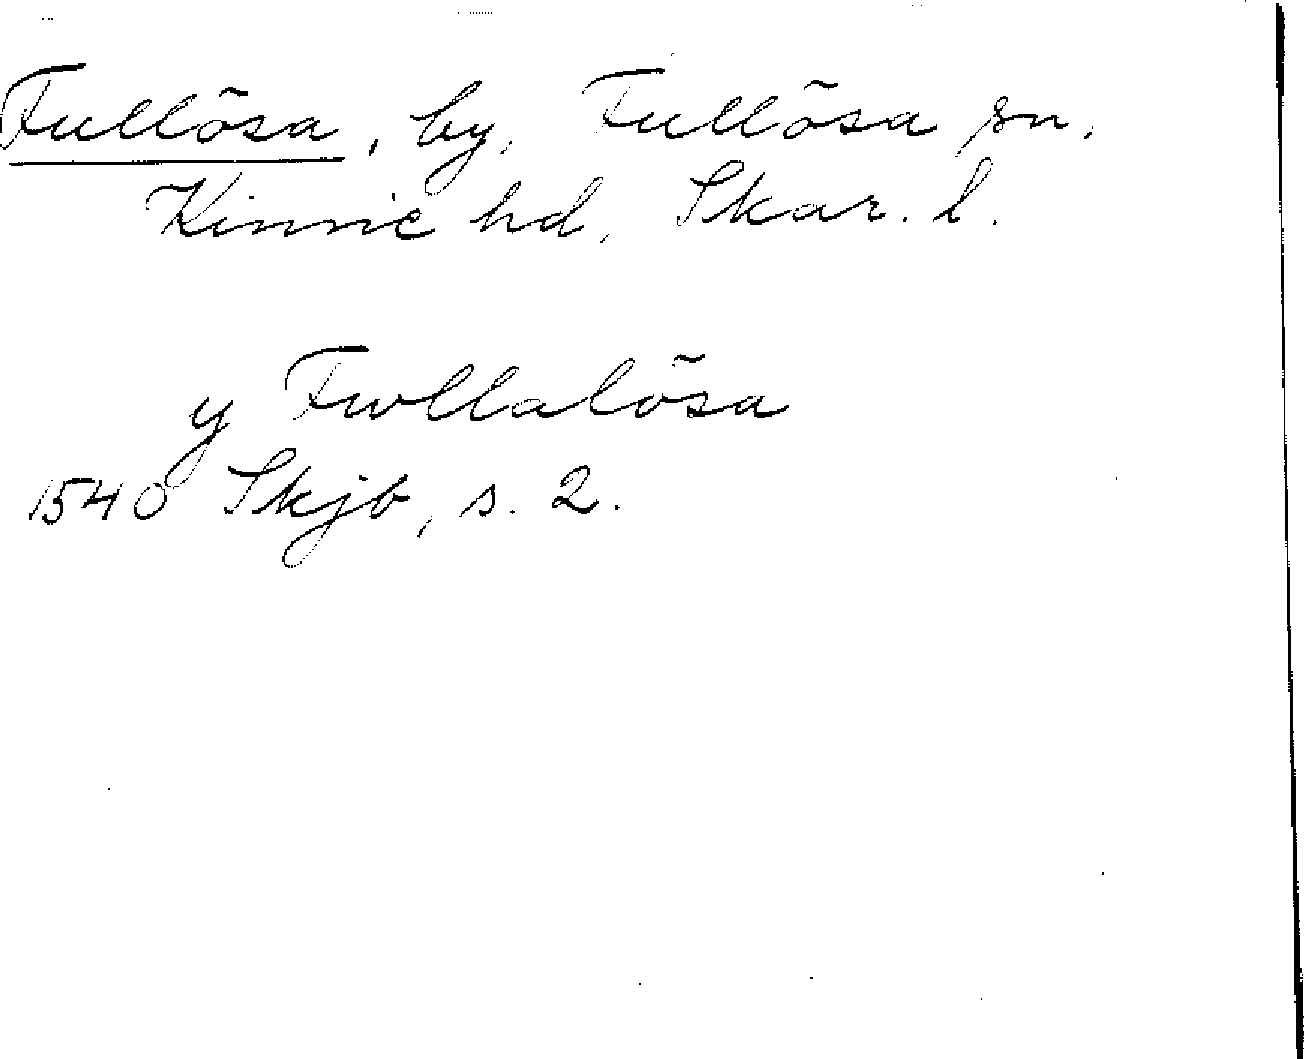 Fullösa, by, Fullösa sn,
Kinne hd, Skar. l.
y Fwllalösa
1540 Skjb, s. 2.